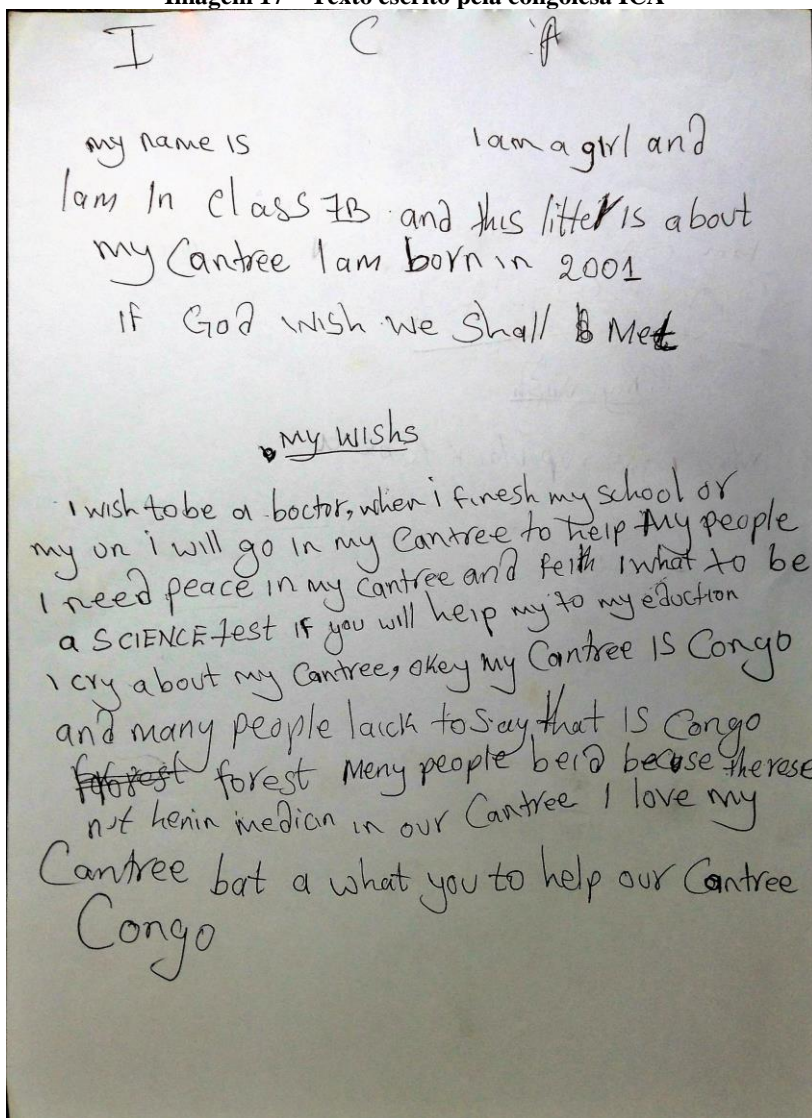 Imagem 17 – Texto escrito pela congolesa ICA
I C A
my name is I am a girl and
I am In class 7B and this litter is about
my Cantree I am born in 2001
if God wish we shall Met
My wishs
I wish to be a boctor, when i finesh my school or
my un i will go in my Cantree to help my people
I need peace in my Cantree and feith I what to be
a SCIENCE test if you will help my to my eduction
I cry about my Cantree, okey my Cantree is Congo
and many people laick to say that is Congo
forest Meny people beid becuse therese
not henin median in our Cantree I love my
Cantree bat a what you to help our Cantree
Congo